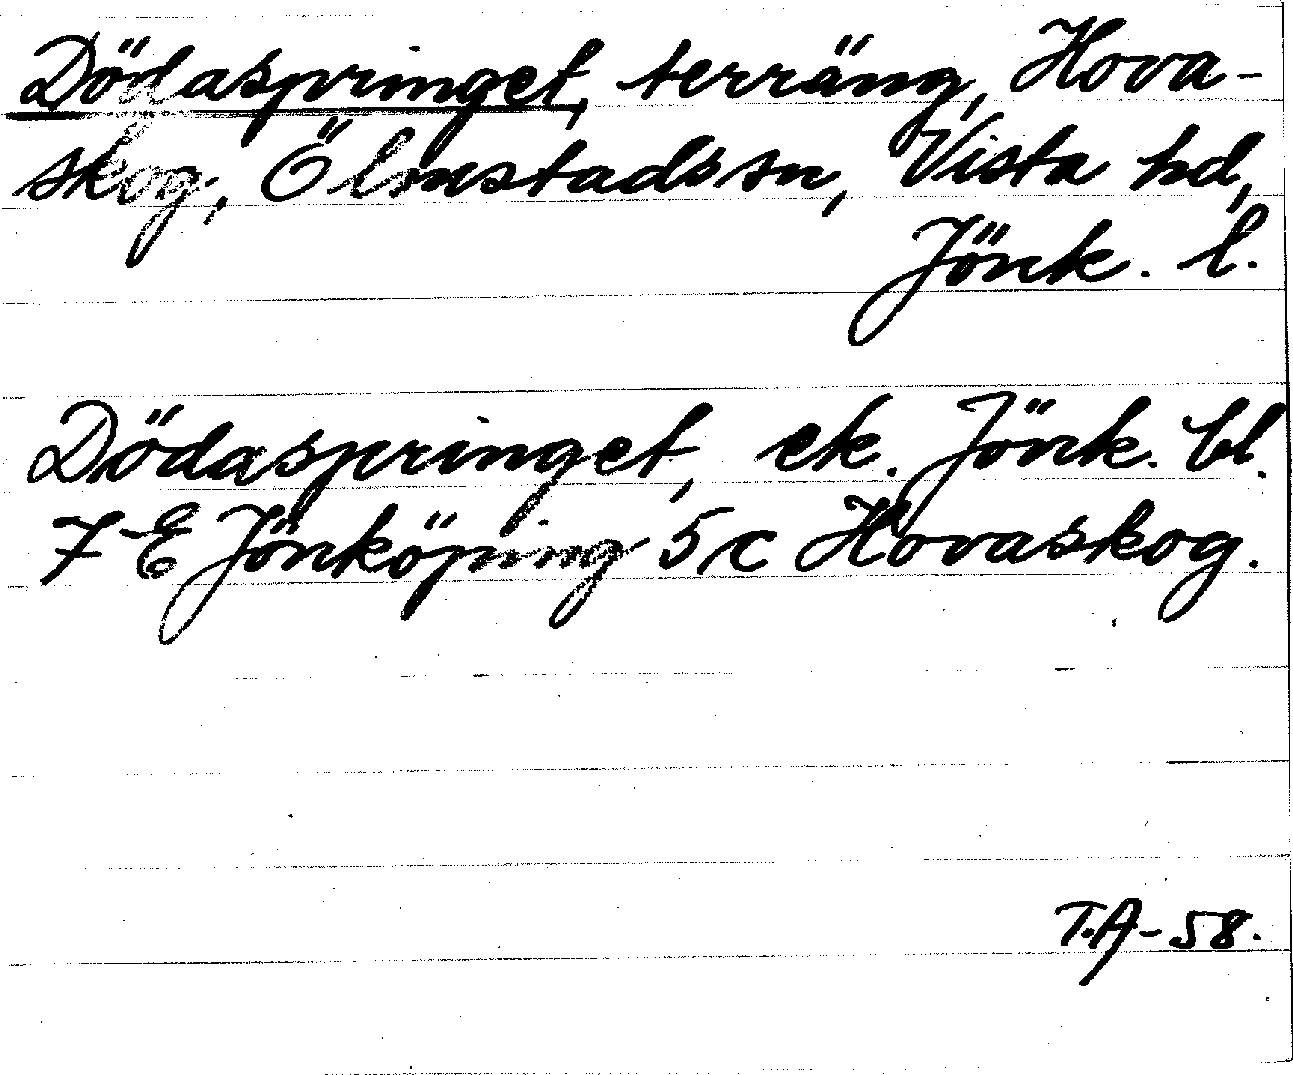 Dödaspringet, terräng, Hova-
skog, Ölmstads sn, Vista hd,
Jönk. l.
Dödaspringet, ek. Jönk. bl.
7 E Jönköping 5 c Hovaskog.
T.A-58.